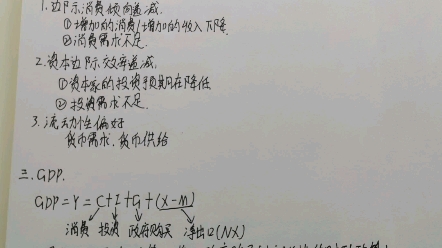 1.边际消费倾向递减.
①增加的消费/增加的收入下降
②消费需求不足.
2.资本边际效率递减.
①资本家的投资预期在降低
②投资需求不足.
3.流动性偏好
货币需求.货币供给
三.GDP.
GDP=Y=C+I+G+(X-M)
消费 投资 政府购买 净出口(NX)